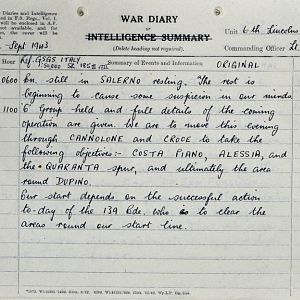 Diaries and Intelligence
d in F.S. Regs., Vol. I.
will be enclosed in A.F.
not available, and for
, the cover will be
WAR DIARY
OF
INTELLIGENCE SUMMARY
(Delete heading not required).
Unit 6th Lincolns
Commanding Officer Lt.
Sept 1943
Ref GSGS ITALY
Summary of Events and Information
ORIGINAL
0600 Bn. still in SALERNO resting. The rest is
beginning to cause some suspicion in our minds.
1100 'O' Group held and full details of the coming
operation are given. We are to move this evening
through CANNOLONE and CROCE to take the
following objectives:- COSTA PIANO, ALESSIA, and
the QUARANTA spur, and ultimately the area
round DUPINO.
Our start depends on the successful action
to-day of the 139 Bde. who is to clear the
areas round our start line.